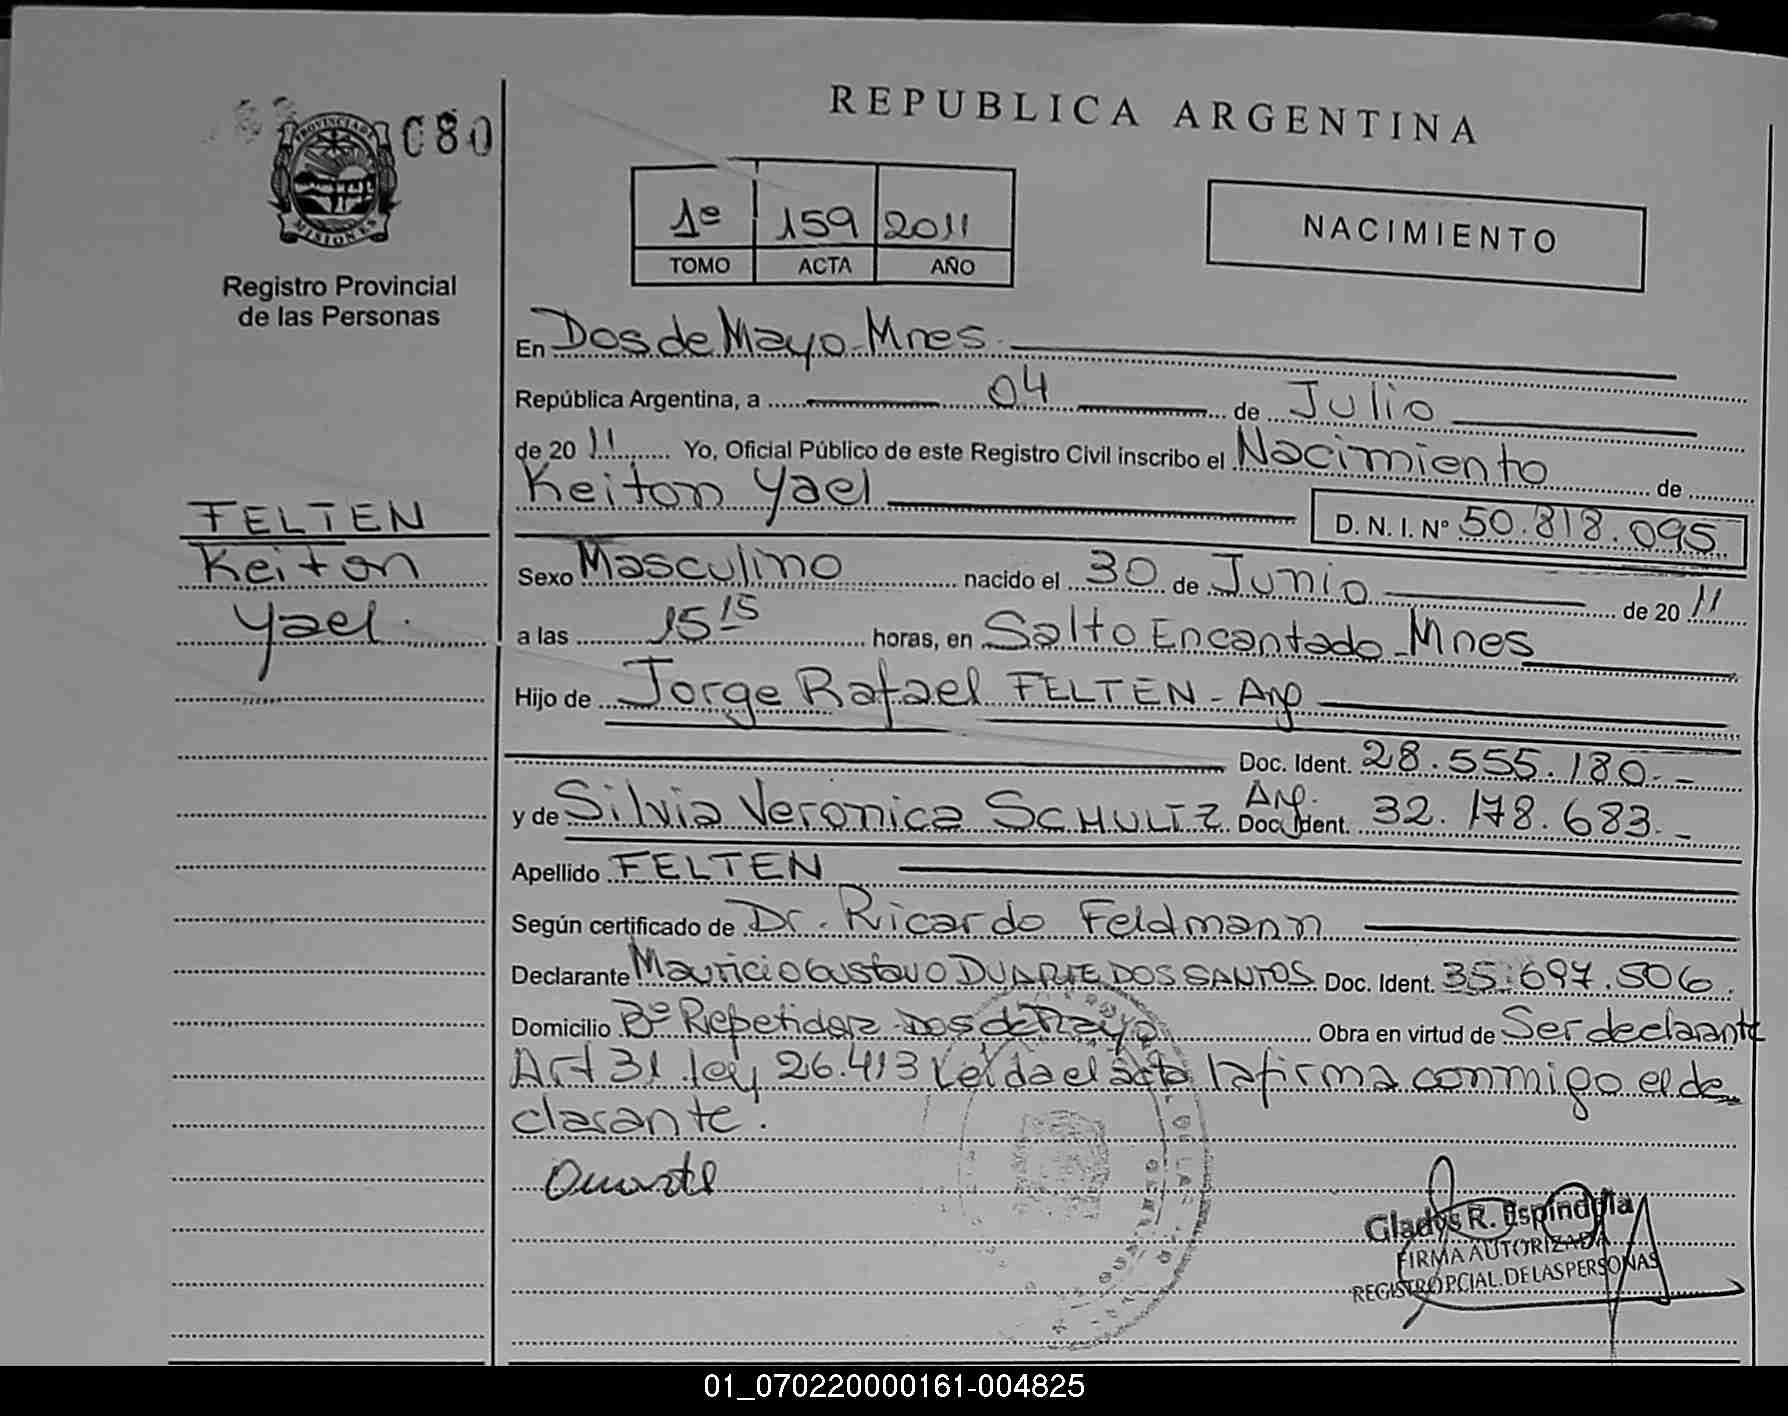 REPUBLICA ARGENTINA
080
PROVINCIA DE
MISIONES
Registro Provincial
de las Personas
1º 159 2011
TOMO ACTA AÑO
NACIMIENTO
En Dos de Mayo - Mnes.
República Argentina, a 04 de Julio
de 2011 Yo, Oficial Público de este Registro Civil inscribo el Nacimiento de
Keiton Yael
D.N.I. Nº 50.818.095
FELTEN
Keiton
Yael.
Sexo Masculino nacido el 30 de Junio de 2011
a las 15 15 horas, en Salto Encantado - Mnes
Hijo de Jorge Rafael FELTEN - Arg
Doc. Ident. 28.555.180.-
y de Silvia Veronica SCHULTZ Arg. Doc. Ident. 32.178.683.-
Apellido FELTEN
Según certificado de Dr. Ricardo Feldmann
Declarante Mauricio Gustavo DUARTE DOS SANTOS Doc. Ident. 35.697.506.
Domicilio Bº Repetidora - Dos de Mayo Obra en virtud de Ser declarante
Art 31 ley 26.413 Leida el acta la firma conmigo el de
clarante.
Duarte
Gladys R. Espindola
FIRMA AUTORIZADA
REGISTRO PCIAL. DE LAS PERSONAS
01_070220000161-004825